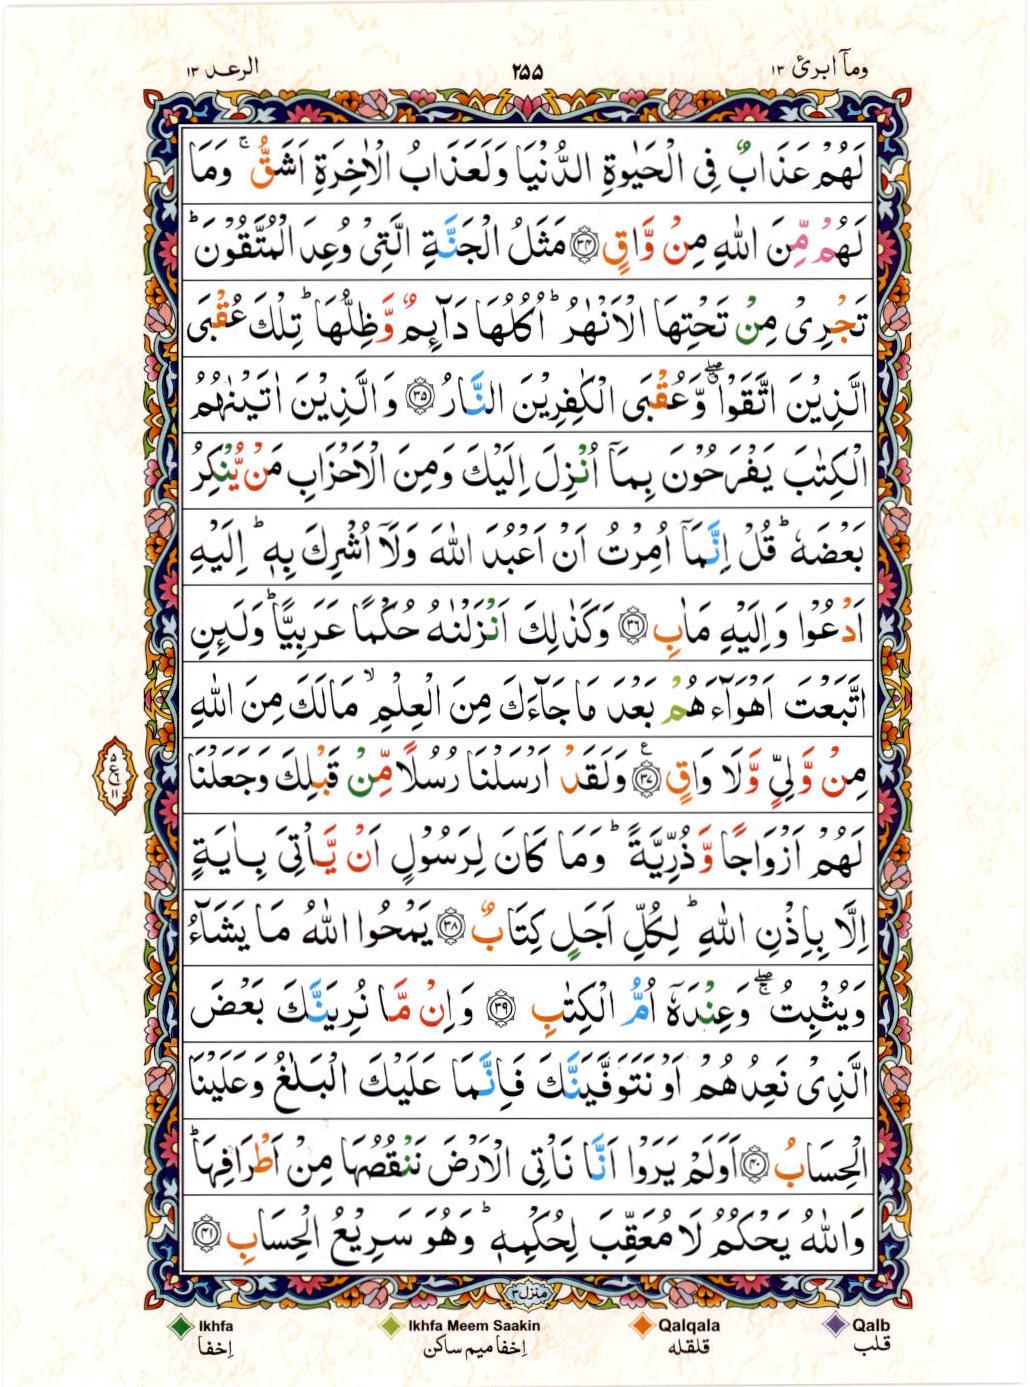 وماۤ ابرئ ۱۳
۲۵۵
الرعد ۱۳
لَهُمْ عَذَابٌ فِی الْحَیٰوةِ الدُّنْیَا وَلَعَذَابُ الْاٰخِرَةِ اَشَقُّ ۚ وَمَا
لَهُمْ مِّنَ اللّٰهِ مِنْ وَّاقٍ ﴿۳۴﴾ مَثَلُ الْجَنَّةِ الَّتِیْ وُعِدَ الْمُتَّقُوْنَ ؕ
تَجْرِیْ مِنْ تَحْتِهَا الْاَنْهٰرُ ؕ اُكُلُهَا دَآىِٕمٌ وَّظِلُّهَا ؕ تِلْكَ عُقْبَی
الَّذِیْنَ اتَّقَوْا ۖۗ وَّعُقْبَی الْكٰفِرِیْنَ النَّارُ ﴿۳۵﴾ وَالَّذِیْنَ اٰتَیْنٰهُمُ
الْكِتٰبَ یَفْرَحُوْنَ بِمَاۤ اُنْزِلَ اِلَیْكَ وَمِنَ الْاَحْزَابِ مَنْ یُّنْكِرُ
بَعْضَهٗ ؕ قُلْ اِنَّمَاۤ اُمِرْتُ اَنْ اَعْبُدَ اللّٰهَ وَلَاۤ اُشْرِكَ بِهٖ ؕ اِلَیْهِ
اَدْعُوْا وَاِلَیْهِ مَاٰبِ ﴿۳۶﴾ وَكَذٰلِكَ اَنْزَلْنٰهُ حُكْمًا عَرَبِیًّا ؕ وَلَىِٕنِ
اتَّبَعْتَ اَهْوَآءَهُمْ بَعْدَ مَا جَآءَكَ مِنَ الْعِلْمِ ۙ مَا لَكَ مِنَ اللّٰهِ
مِنْ وَّلِیٍّ وَّلَا وَاقٍ ﴿۳۷﴾ ع وَلَقَدْ اَرْسَلْنَا رُسُلًا مِّنْ قَبْلِكَ وَجَعَلْنَا
۵
ع
۱۱
لَهُمْ اَزْوَاجًا وَّذُرِّیَّةً ؕ وَمَا كَانَ لِرَسُوْلٍ اَنْ یَّاْتِیَ بِاٰیَةٍ
اِلَّا بِاِذْنِ اللّٰهِ ؕ لِكُلِّ اَجَلٍ كِتَابٌ ﴿۳۸﴾ یَمْحُوا اللّٰهُ مَا یَشَآءُ
وَیُثْبِتُ ۖۚ وَعِنْدَهٗۤ اُمُّ الْكِتٰبِ ﴿۳۹﴾ وَاِنْ مَّا نُرِیَنَّكَ بَعْضَ
الَّذِیْ نَعِدُهُمْ اَوْ نَتَوَفَّیَنَّكَ فَاِنَّمَا عَلَیْكَ الْبَلٰغُ وَعَلَیْنَا
الْحِسَابُ ﴿۴۰﴾ اَوَلَمْ یَرَوْا اَنَّا نَاْتِی الْاَرْضَ نَنْقُصُهَا مِنْ اَطْرَافِهَا ؕ
وَاللّٰهُ یَحْكُمُ لَا مُعَقِّبَ لِحُكْمِهٖ ؕ وَهُوَ سَرِیْعُ الْحِسَابِ ﴿۴۱﴾
منزل ۳
Ikhfa Ikhfa Meem Saakin Qalqala Qalb
اِخفا اِخفا میم ساکن قلقله قلب